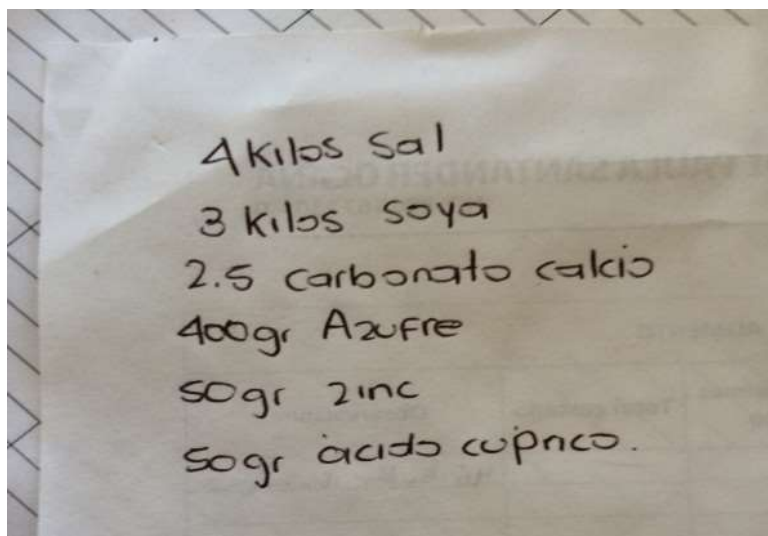 4 kilos sal
3 kilos soya
2.5 carbonato calcio
400gr Azufre
50gr zinc
50gr ácido cúprico.